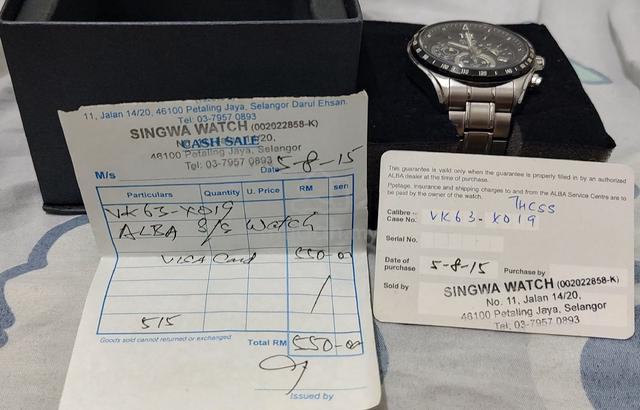 11, Jalan 14/20, 46100 Petaling Jaya, Selangor Darul Ehsan.
Tel: 03-7957 0893
SINGWA WATCH (002022858-K)
CASH SALE
No. 11, Jalan 14/20,
46100 Petaling Jaya, Selangor
Tel: 03-7957 0893
M/s
Date 5-8-15
Particulars Quantity U. Price RM sen
VK63-X019
ALBA S/S Watch
VISA Card 550-00
515
Goods sold cannot returned or exchanged
Total RM 550-00
Issued by
This guarantee is valid only when the guarantee is properly filled in by an authorized
ALBA dealer at the time of purchase.
Postage, insurance and shipping charges to and from the ALBA Service Centre are to
be paid by the owner of the watch.
Calibre -
Case No. VK63-X019
Serial No.
Date of
purchase 5-8-15 Purchase by
Sold by
SINGWA WATCH (002022858-K)
No. 11, Jalan 14/20,
46100 Petaling Jaya, Selangor
Tel: 03-7957 0893